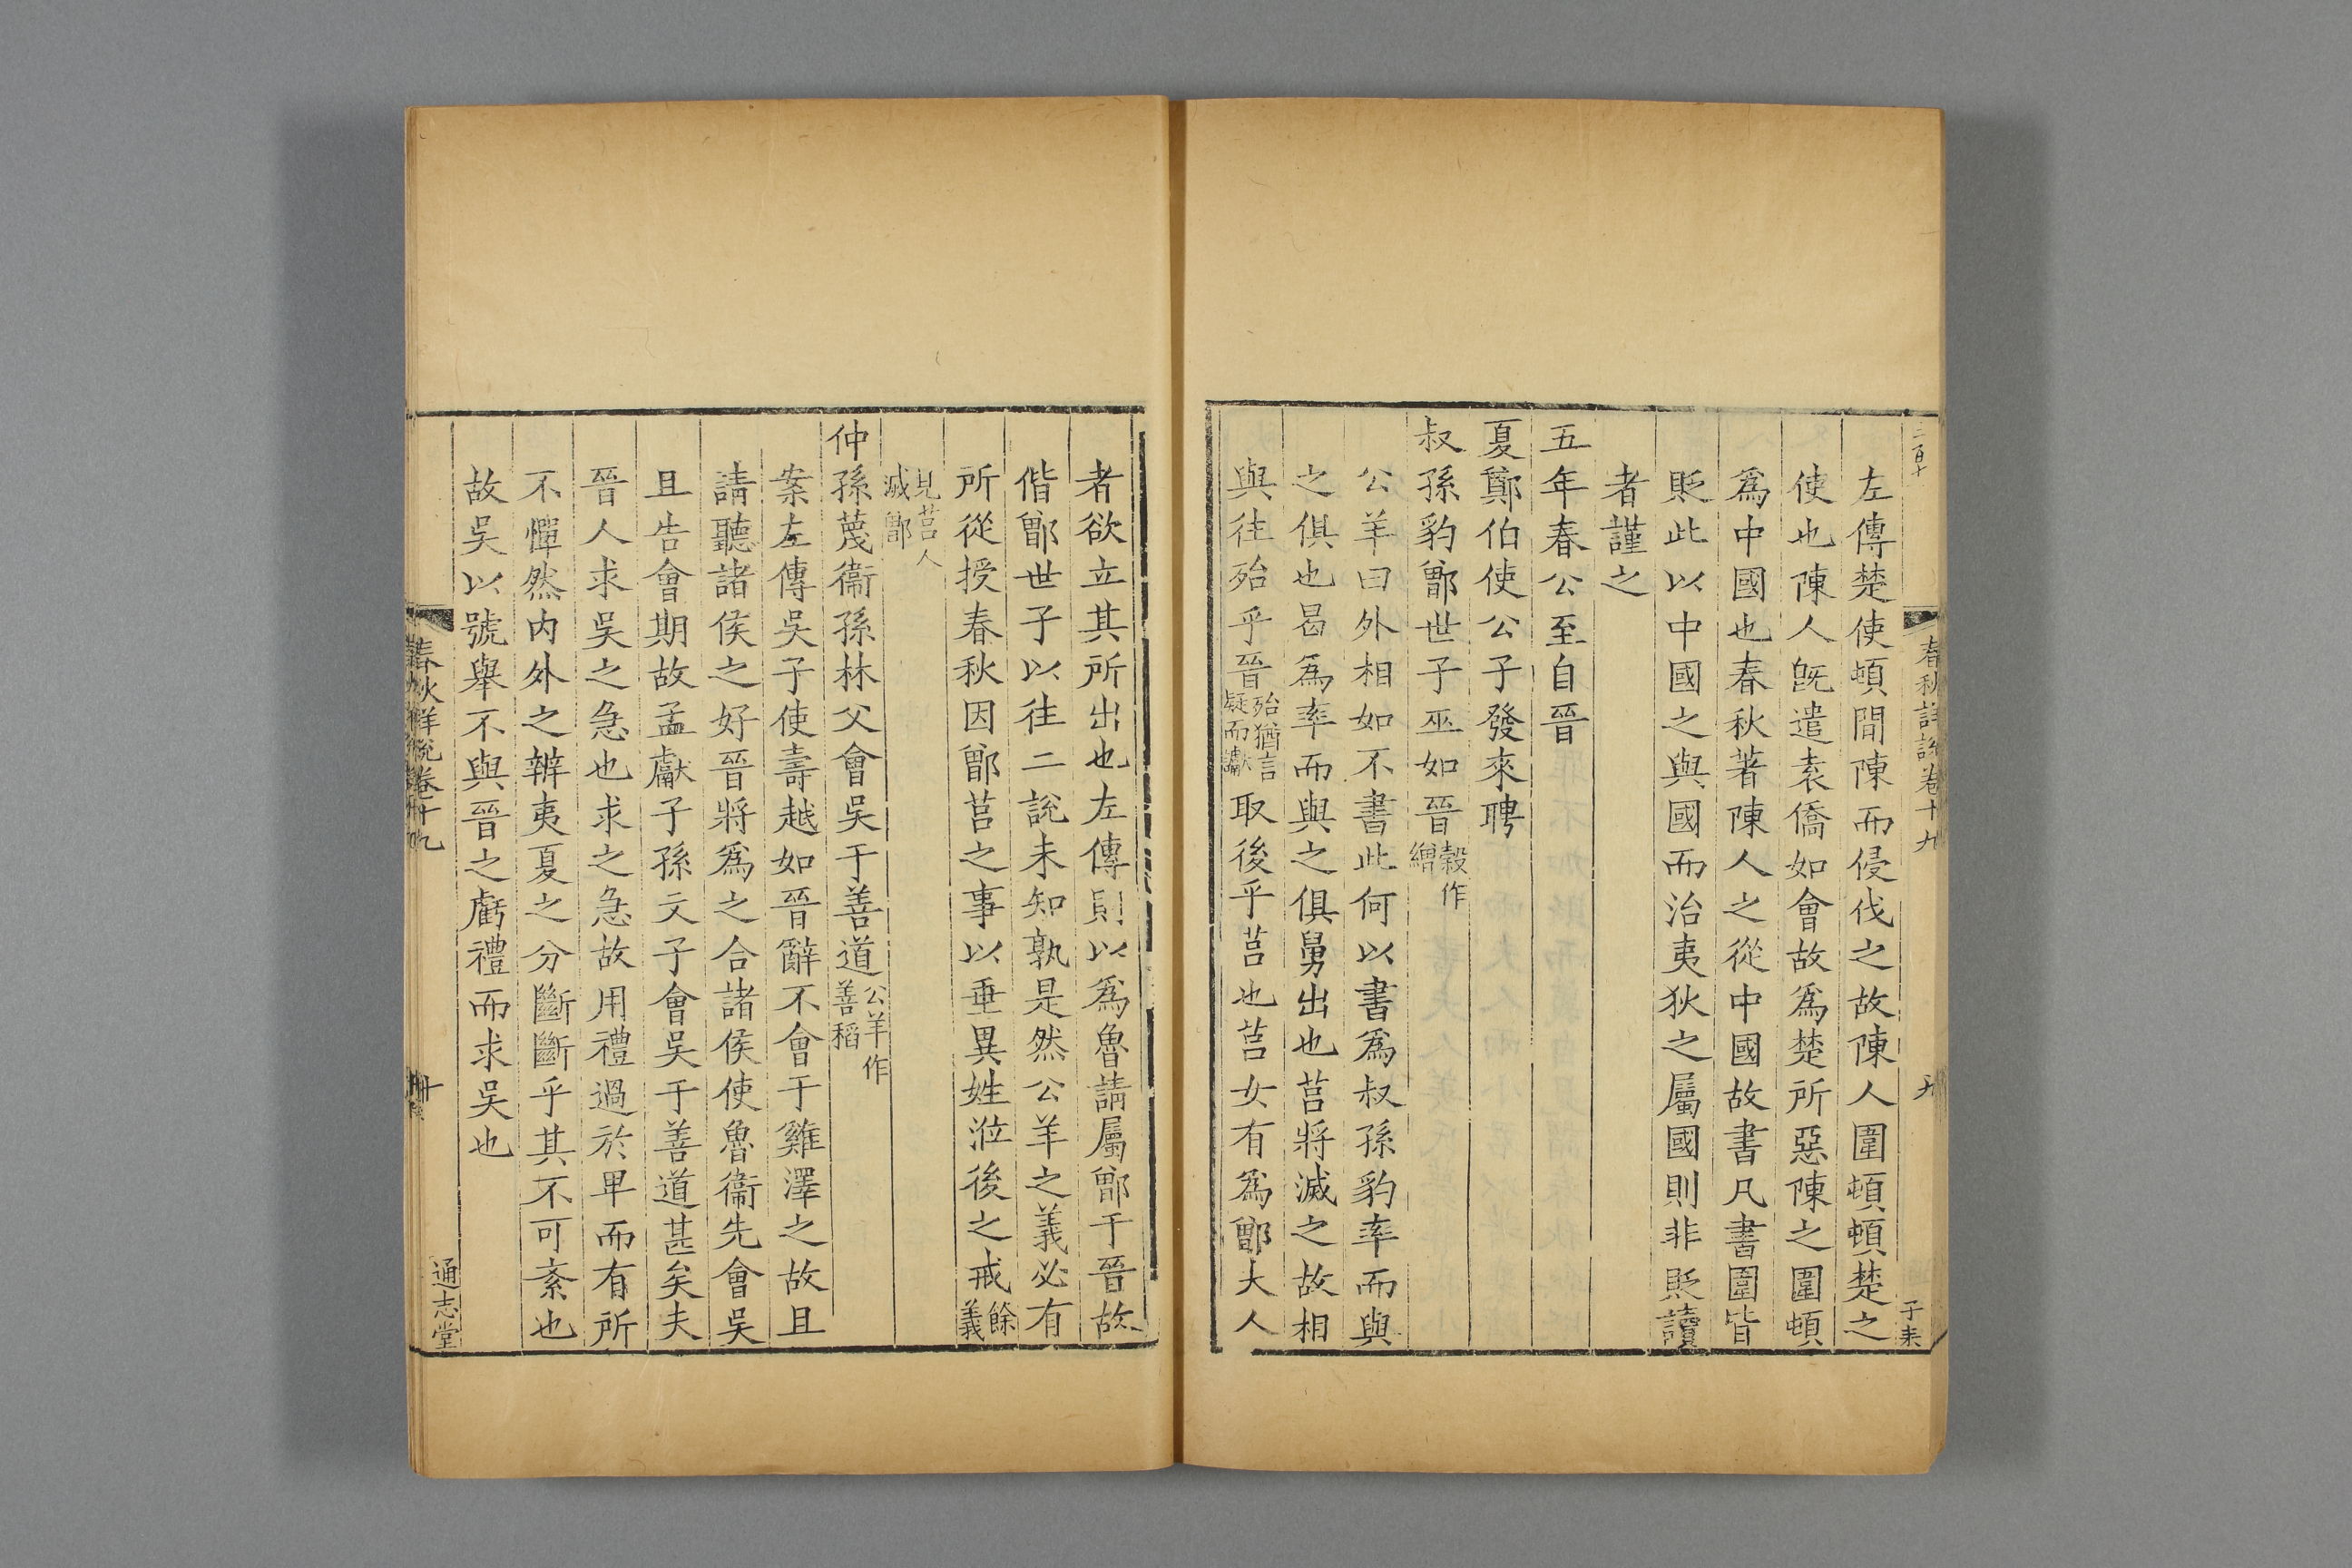 春秋詳說卷十九
九
子耒
左傳楚使頓間陳而侵伐之故陳人圍頓頓楚之
使也陳人旣遣袁僑如會故爲楚所惡陳之圍頓
爲中國也春秋著陳人之從中國故書凡書圍皆
貶此以中國之與國而治夷狄之屬國則非貶讀
者謹之
五年春公至自晉
夏鄭伯使公子發來聘
叔孫豹鄫世子巫如晉榖作繒
公羊曰外相如不書此何以書爲叔孫豹率而與
之俱也曷爲率而與之俱舅出也莒將滅之故相
與往殆乎晉殆猶言疑而讞取後乎莒也莒女有爲鄫夫人
者欲立其所出也左傳則以爲魯請屬鄫于晉故
偕鄫世子以往二說未知孰是然公羊之義必有
所從授春秋因鄫莒之事以垂異姓涖後之戒餘義
見莒人滅鄫
仲孫蔑衞孫林父會吳于善道公羊作善稻
案左傳吳子使壽越如晉辭不會于雞澤之故且
請聽諸侯之好晉將爲之合諸侯使魯衞先會吳
且告會期故孟獻子孫文子會吳于善道甚矣夫
晉人求吳之急也求之急故用禮過於卑而有所
不憚然内外之辨夷夏之分斷斷乎其不可紊也
故吳以號舉不與晉之虧禮而求吳也
春秋詳說卷十九
通志堂